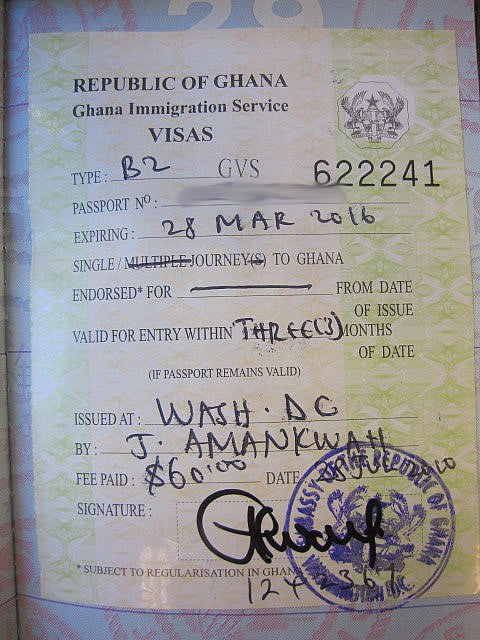 REPUBLIC OF GHANA
Ghana Immigration Service
VISAS
TYPE : B2 GVS 622241
PASSPORT Nº :
EXPIRING : 28 MAR 2016
SINGLE / MULTIPLE JOURNEY(S) TO GHANA
ENDORSED* FOR FROM DATE
OF ISSUE
VALID FOR ENTRY WITHIN THREE(3) MONTHS
OF DATE
(IF PASSPORT REMAINS VALID)
ISSUED AT : WASH. DC
BY : J. AMANKWAH
FEE PAID : $60.00 DATE 2010
SIGNATURE :
EMBASSY OF THE REPUBLIC OF GHANA
WASHINGTON D.C.
* SUBJECT TO REGULARISATION IN GHANA